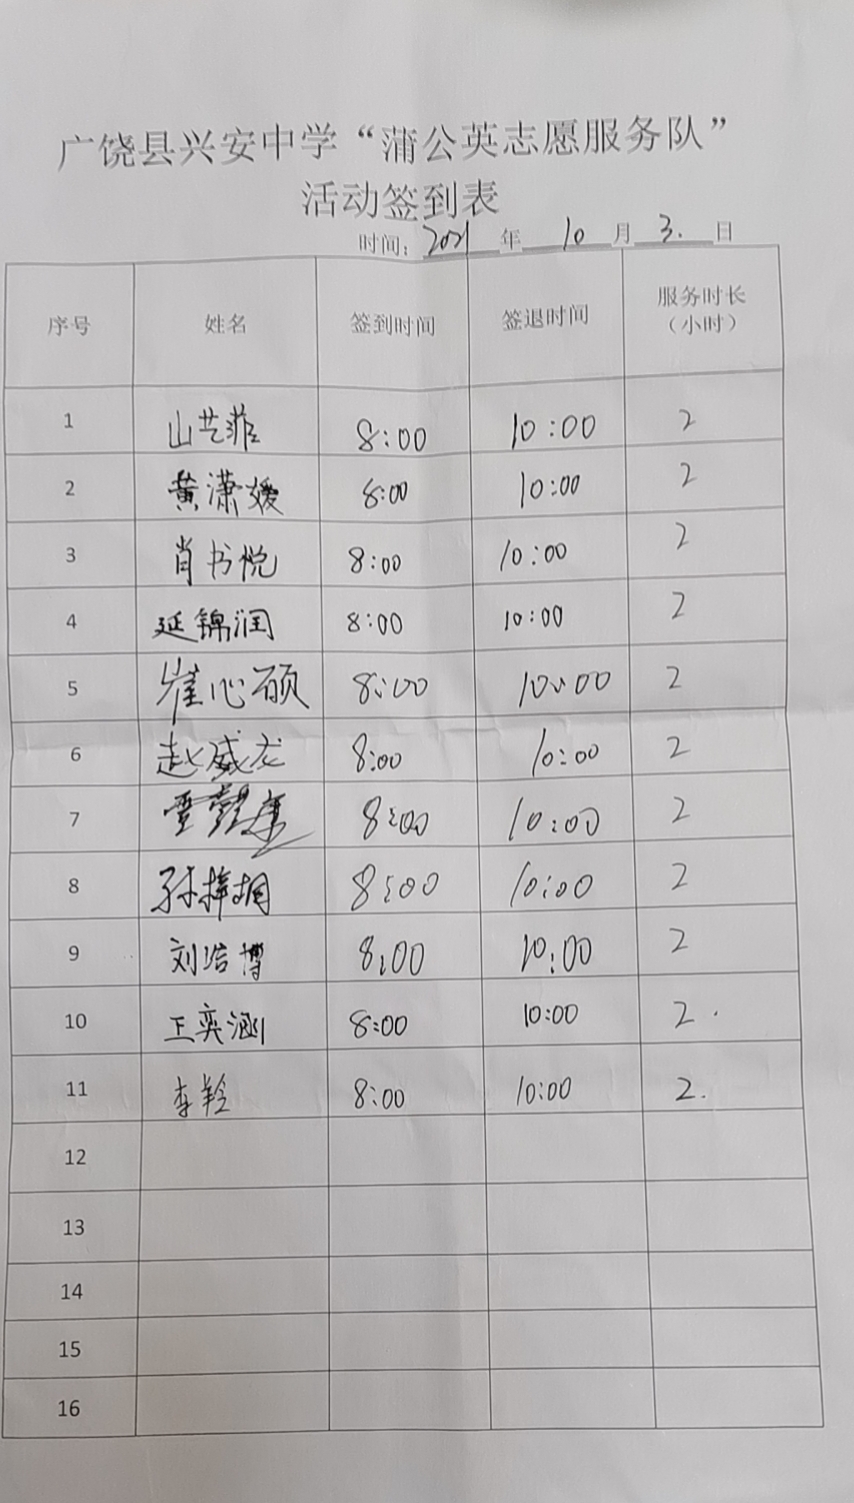 广饶县兴安中学“蒲公英志愿服务队”
活动签到表
时间：2021 年 10 月 3. 日
序号 姓名 签到时间 签退时间 服务时长（小时）
1 山艺菲 8:00 10:00 2
2 黄潇媛 8:00 10:00 2
3 肖书悦 8:00 10:00 2
4 延锦润 8:00 10:00 2
5 崔心硕 8:00 10:00 2
6 赵威龙 8:00 10:00 2
7 8:00 10:00 2
8 孙梓桐 8:00 10:00 2
9 刘浩博 8:00 10:00 2
10 王奕涵 8:00 10:00 2.
11 李羚 8:00 10:00 2.
12
13
14
15
16